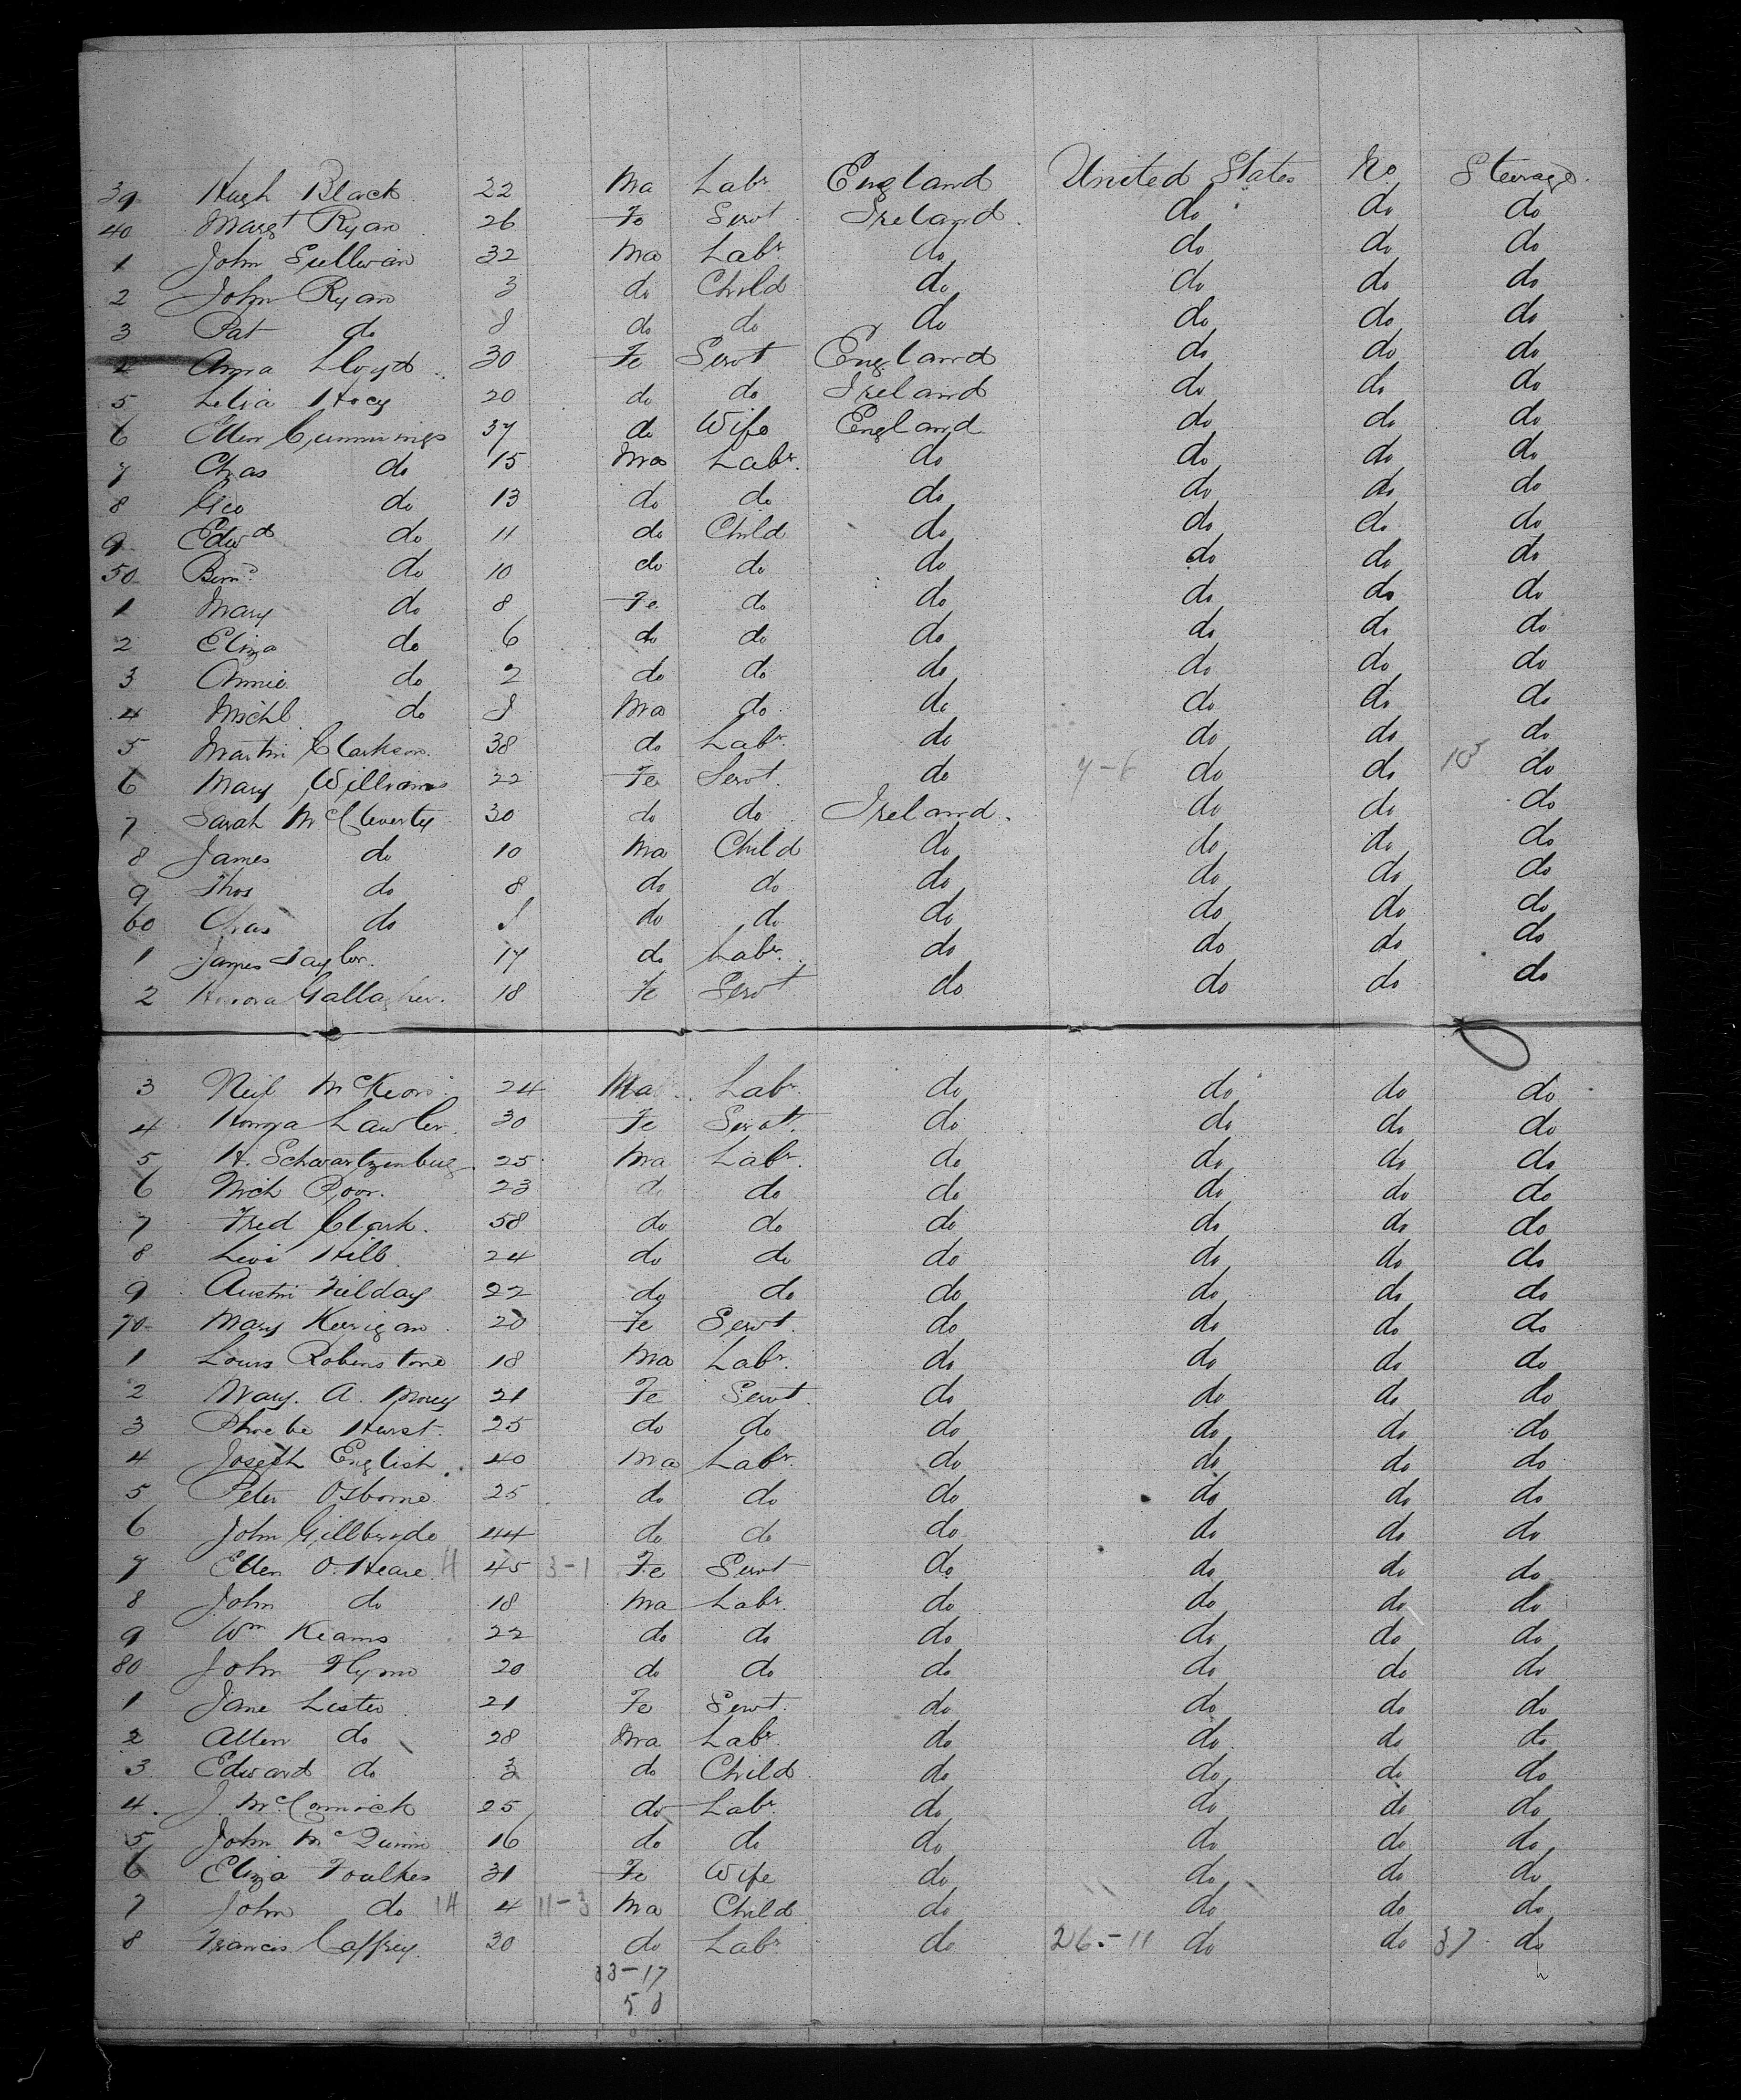 39 Hugh Black 22 Ma Labr England United States No Steerage.
40 Margt Ryan 26 Fe Servt Ireland. do do do
1 John Sullivan 32 Ma Labr do do do do
2 John Ryan 3 do Child do do do do
3 Pat do do do do do do do
4 Anna Lloyd 30 Fe Servt England do do do
5 Lelia 20 do do Ireland do do do
6 Ellen Cummings 37 do Wife England do do do
7 Chas do 15 Ma Labr. do do do do
8 Geo do 13 do do do do do do
9 Edwd do 11 do Child do do do do
50 do 10 do do do do do do
1 Mary do 8 Fe do do do do do
2 Eliza do 6 do do do do do do
3 Annie do 2 do do do do do do
4 Michl do Ma do do do do do
5 Martin Clarkson. 38 do Labr do do do do
6 Mary Williams 22 Fe Servt. do do do do
7 Sarah McCleverty 30 do do Ireland. do do do
8 James do 10 Ma Child do do do do
9 Thos do 8 do do do do do do
60 Chas do do do do do do do
1 James Taylor. 17 do Labr. do do do do
2 Honora Gallagher. 18 Fe Servt do do do do
3 Neil McKeon 24 Ma Labr do do do do
4 Lawler. 30 Fe Servt. do do do do
5 H. Schwartzenburg 25 Ma Labr. do do do do
6 Mich Poor. 23 do do do do do do
7 Fred Clark. 58 do do do do do do
8 Levi Hill 24 do do do do do do
9 Austin 22 do do do do do do
70 Mary Kerigan 20 Fe Servt. do do do do
1 Louis 18 Ma Labr. do do do do
2 Mary. A. 21 Fe Servt. do do do do
3 Phoebe Hurst. 25 do do do do do do
4 Joseph English 40 Ma Labr. do do do do
5 Peter Osborne 25 do do do do do do
6 John Gillbride 44 do do do do do do
7 Ellen O'Heare H 45 3-1 Fe Servt do do do do
8 John do 18 Ma Labr. do do do do
9 Wm Keams 22 do do do do do do
80 John Flynn 20 do do do do do do
1 Jane Lister 21 Fe Servt. do do do do
2 Allen do 28 Ma Labr. do do do do
3 Edward do 3 do Child do do do do
4. J. McCormick 25 do Labr. do do do do
5 John McQuinn 16 do do do do do do
6 Eliza Foulkes 31 Fe Wife do do do do
7 John do 4 11-3 Ma Child do do do do
8 Francis Caffrey. 30 do Labr do 26.-11 do do 37 do
33-17